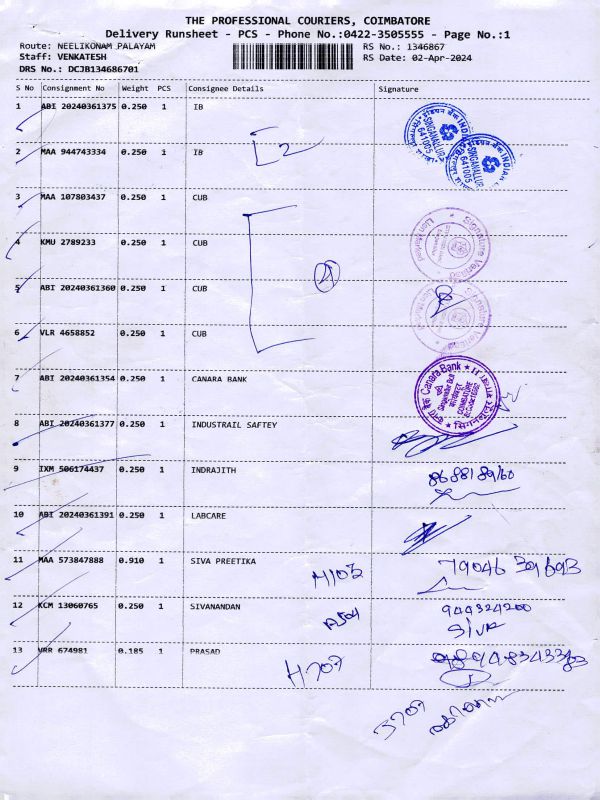 THE PROFESSIONAL COURIERS, COIMBATORE
Delivery Runsheet - PCS - Phone No.:0422-3505555 - Page No.:1
Route: NEELIKONAM PALAYAM RS No.: 1346867
Staff: VENKATESH RS Date: 02-Apr-2024
DRS No.: DCJB134686701
S No Consignment No Weight PCS Consignee Details Signature
1 ABI 20240361375 0.250 1 IB
2 MAA 944743334 0.250 1 IB 2
3 MAA 107803437 0.250 1 CUB
4 KMU 2789233 0.250 1 CUB
5 ABI 20240361360 0.250 1 CUB 4
6 VLR 4658852 0.250 1 CUB
7 ABI 20240361354 0.250 1 CANARA BANK Canara Bank
8 ABI 20240361377 0.250 1 INDUSTRAIL SAFTEY
9 IXM 506174437 0.250 1 INDRAJITH
10 ABI 20240361391 0.250 1 LABCARE
11 MAA 573847888 0.910 1 SIVA PREETIKA H103
12 KCM 13060765 0.250 1 SIVANANDAN A504 949324200
Siva
13 VRR 674981 0.185 1 PRASAD H707